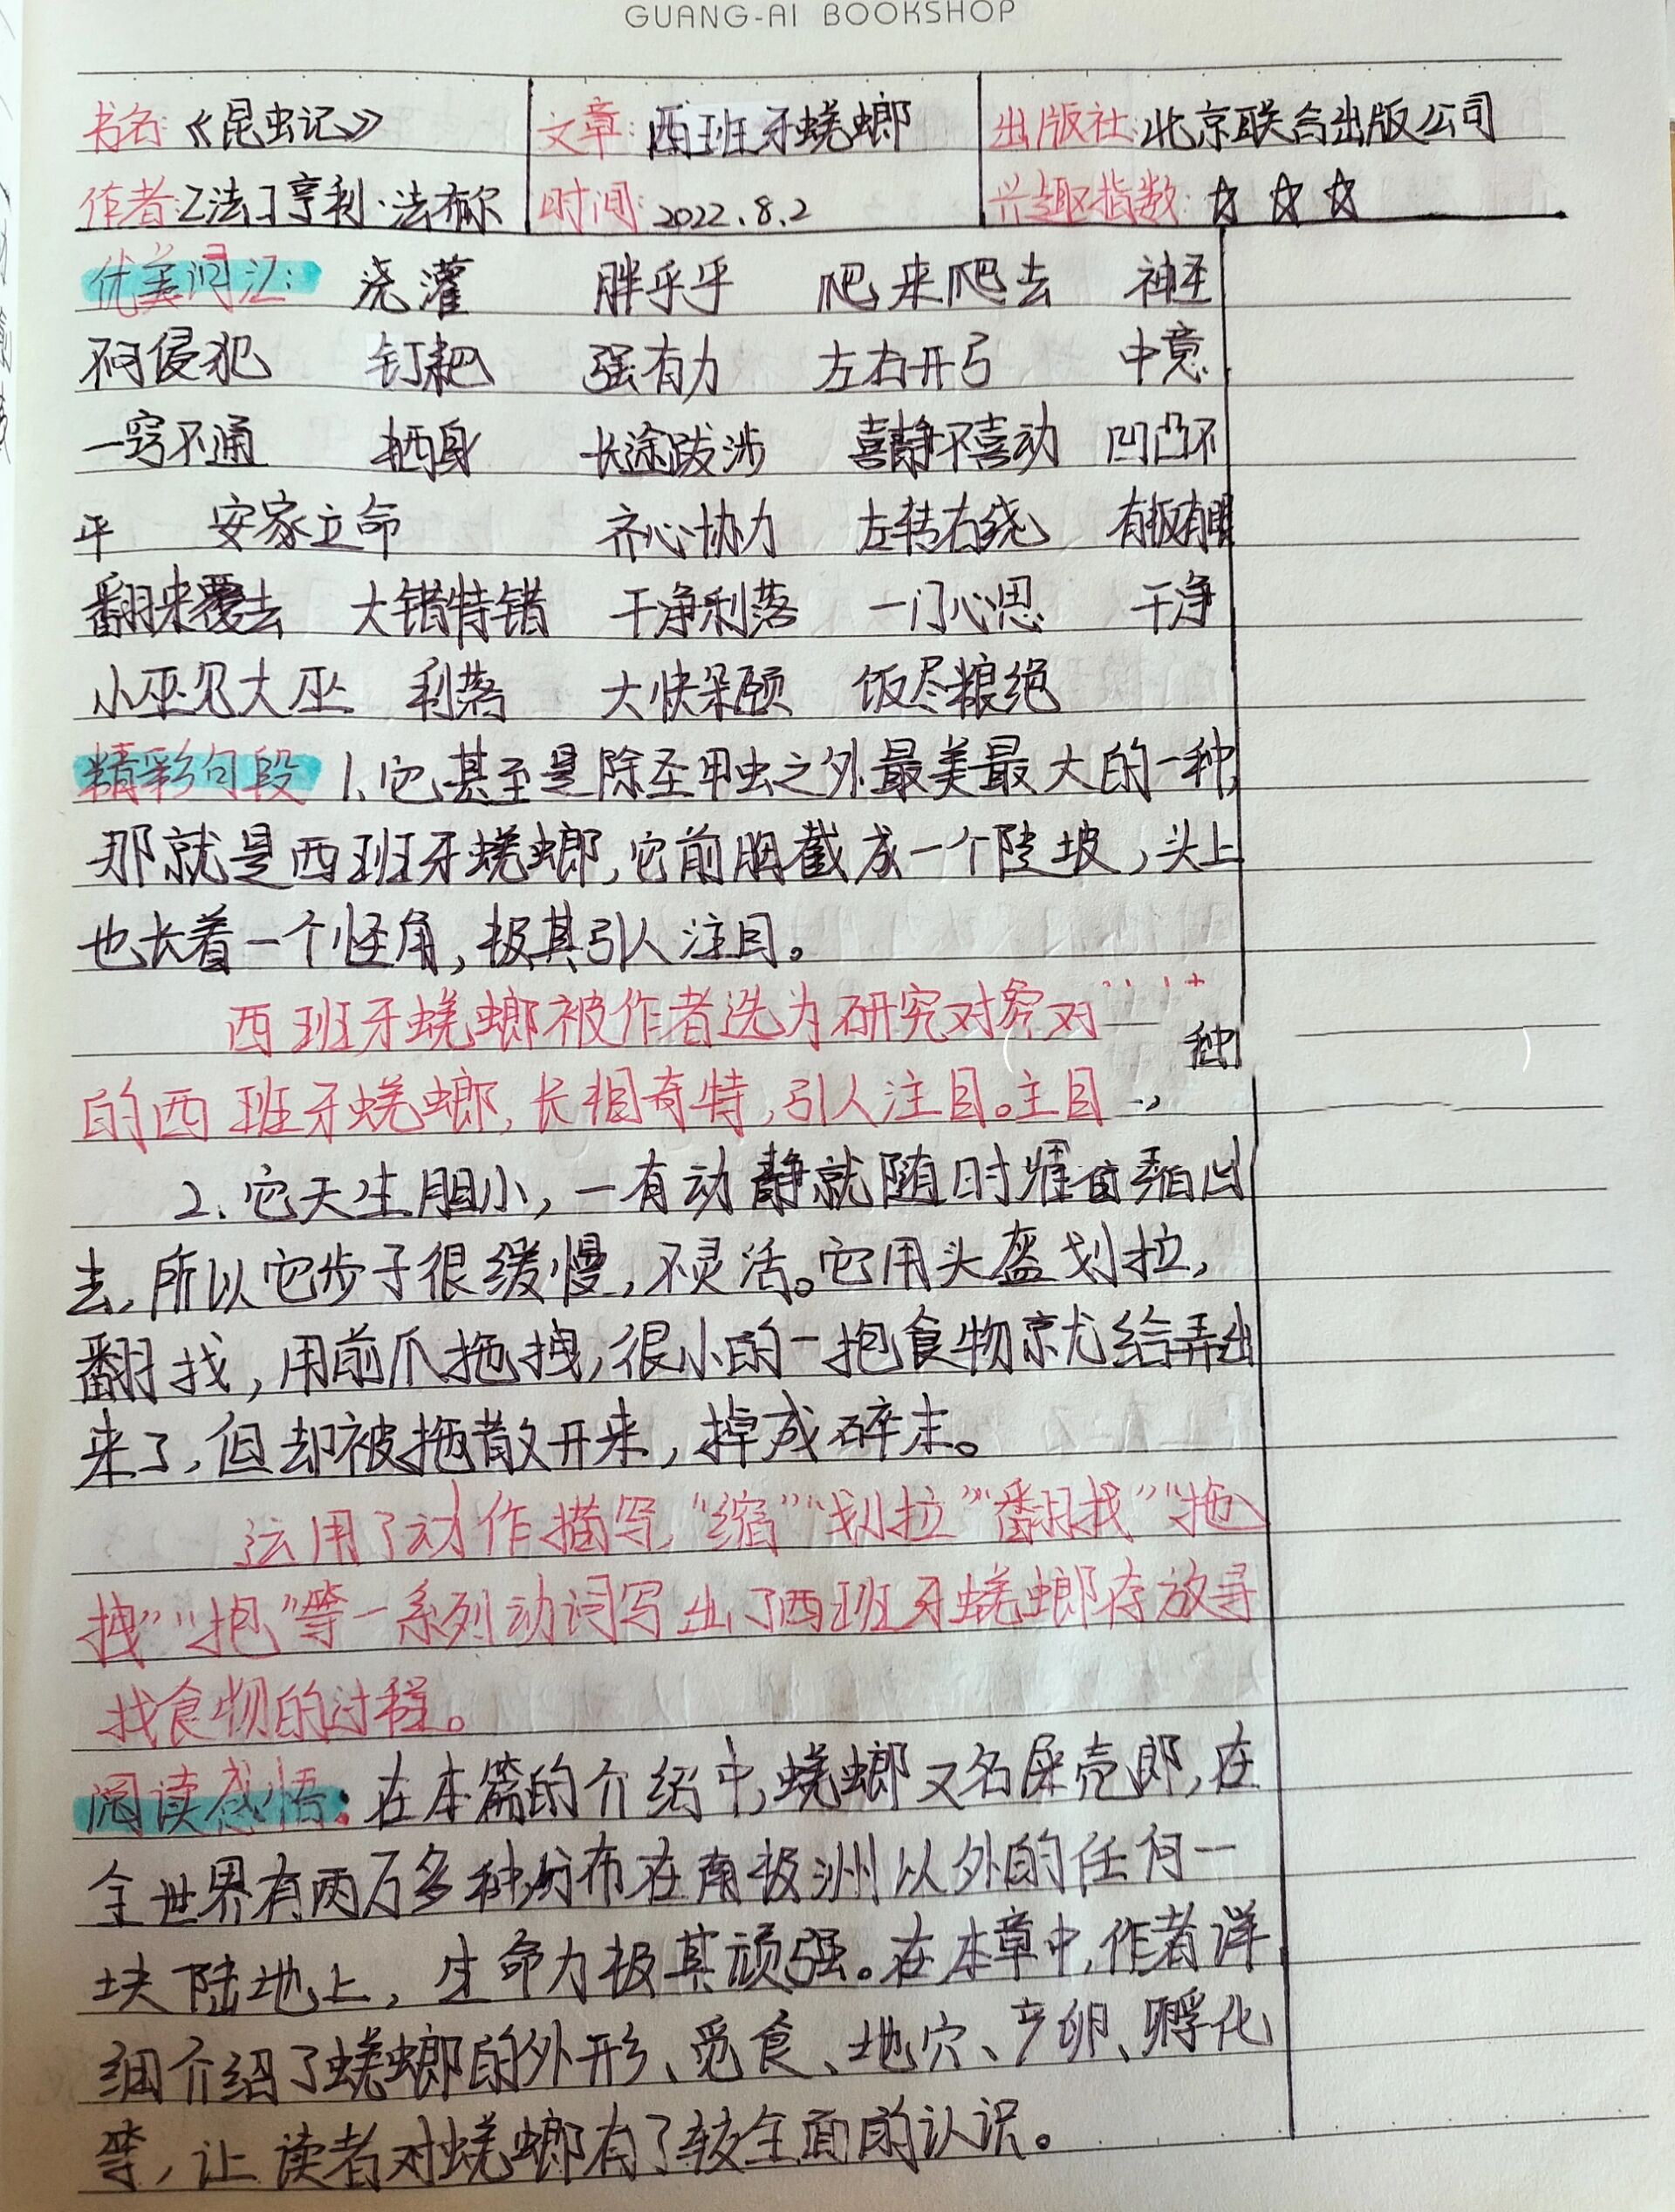 GUANG-AI BOOKSHOP
书名:《昆虫记》 文章:西班牙蜣螂 出版社:北京联合出版公司
作者:[法]亨利·法布尔 时间:2022.8.2 兴趣指数:☆☆☆
优美词汇: 浇灌 胖乎乎 爬来爬去 神圣
不可侵犯 钉耙 强有力 左右开弓 中意
一窍不通 栖身 长途跋涉 喜静不喜动 凹凸不
平 安家立命 齐心协力 左转右绕 有板有眼
翻来覆去 大错特错 干净利落 一门心思 干净
小巫见大巫 利落 大快朵颐 饭尽粮绝
精彩句段 1、它甚至是除圣甲虫之外最美最大的一种,
那就是西班牙蜣螂,它前胸截成一个陡坡,头上
也长着一个怪角,极其引人注目。
西班牙蜣螂被作者选为研究对 对
种
的西班牙蜣螂,长相奇特,引人注目。主目
2.它天生胆小,一有动静就随时 缩回
去,所以它步子很缓慢,不灵活。它用头盔划拉,
翻找,用前爪拖拽,很小的一抱食物就给弄出
来了,但却被拖散开来,掉成碎末。
运用了动作描写,“缩”“划拉”“翻找”“拖
拽”“抱”等一系列动词写出了西班牙蜣螂存放寻
找食物的过程。
阅读感悟:在本篇的介绍中,蜣螂又名屎壳郎,在
全世界有两万多种,分布在南极洲以外的任何一
块陆地上,生命力极其顽强。在本章中,作者详
细介绍了蜣螂的外形、觅食、地穴、产卵、孵化
等,让读者对蜣螂有了较全面的认识。